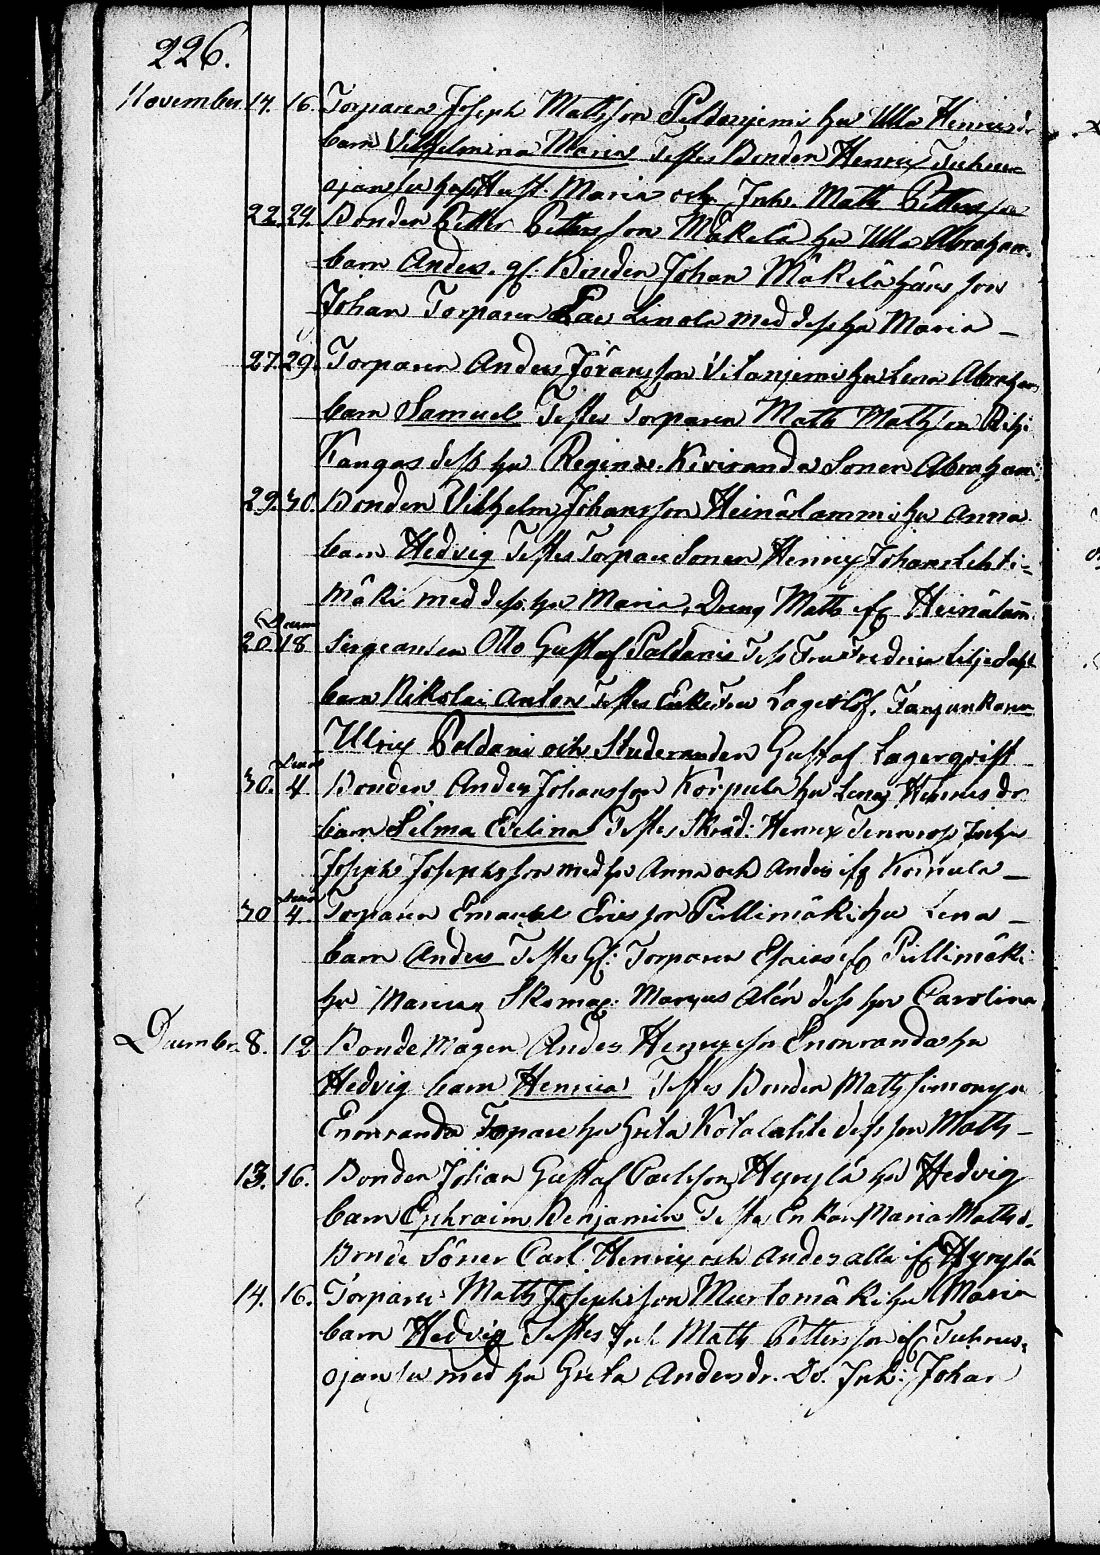 226.
November 14. 16. Torparen Joseph Matsson Peldonjemi hu Ulla Henricsdr
barn Vilhelmina Maria Testes Bonden Henric Tuhru
ojansu hust. Maria och Inh. Math Pettersson
22. 24. Bonden Petter Pettersson Mäkelä hu Ulla Abraham.
barn Anders. gf. Bonden Johan Mäkelä hans son
Johan Torparen Isac Linola med dess hu Maria —
27. 29. Torparen Anders Jöransson Vilanjemi hu Lena Abraham
barn Samuel Testes Torparen Math Mathsson Rihi
Kangas dess hu Regina Kiviranda Sonen Abraham
29. 30. Bonden Vilhelm Johansson Heinälammi hu Anna
barn Hedvig Testes Torpare Sonen Henric Johans Lehti-
mäki med dess hu Maria, Dreng Math ifr Heinälam̄
Decem
20 18 Sergeanten Otto Gustaf Paldanis Fru Fredrica Liljedahl
barn Nikolai Anton Testes Enke Fru Lagerlöf, Fanjunkaren
Ulric Poldani och Studeranden Gustaf Lagerqvist
30. 4 Bonden Anders Johansson Korpela hu Lena Henricsdr
barn Selma Evelina Testes Skräd: Henric
Joseph Josephsson med hu Anna och Anders ifr Korpela —
30 4. Torparen Emanuel Ericsson Pirllimäki hu Lena —
barn Anders Testes Gf: Torparen Esaias ifr Pirllimäki
hu Maria, Skomag: Marcus Alén dess hu Carolina
December 8. 12 Bonde Mågen Anders Henricsson Enonranda hu
Hedvig barn Henrica Testes Bonden Math Simonsson
Enonranda Torpare hu Greta Kotalahti dess son Math —
13. 16. Bonden Johan Gustaf Carlsson Hyrylä hu Hedvig
barn Ephraim Benjamin Testes Enkan Maria Mathsd.
Bonde Söner Carl, Henric och Anders alla ifr Hyrylä
14. 16. Torparen Math Josephsson Murtomäki hu Maria
barn Hedvig Testes Inh Math Pettersson ifr Tuhru-
ojansu med hu Greta Andersdr. Do. Inh: Johan